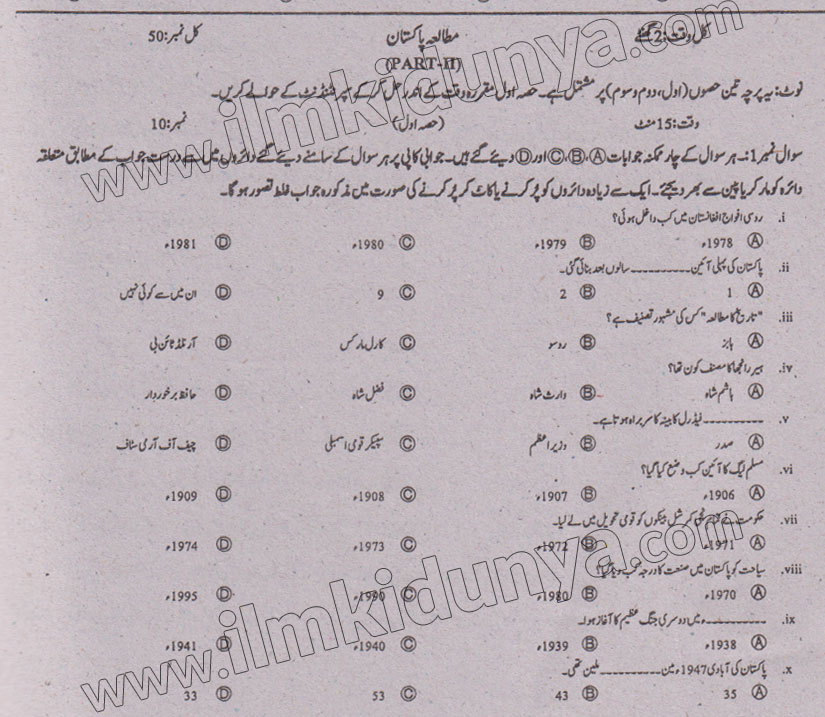 کل وقت: 2 گھنٹے مطالعہ پاکستان کل نمبر: 50
(PART-II)
نوٹ: یہ پرچہ تین حصوں (اول، دوم و سوم) پر مشتمل ہے۔ حصہ اول مقررہ وقت کے اندر حل کر کے سپرنٹنڈنٹ کے حوالے کریں۔
وقت: 15 منٹ (حصہ اول) نمبر: 10
سوال نمبر 1:۔ ہر سوال کے چار ممکنہ جوابات Ⓐ، Ⓑ، Ⓒ اور Ⓓ دیئے گئے ہیں۔ جوابی کاپی پر ہر سوال کے سامنے دیئے گئے دائروں میں سے درست جواب کے مطابق متعلقہ
دائرہ کو مارکر یا پین سے بھر دیجئے۔ ایک سے زیادہ دائروں کو پُر کرنے یا کاٹ کر پُر کرنے کی صورت میں مذکورہ جواب غلط تصور ہوگا۔
i. روسی افواج افغانستان میں کب داخل ہوئی؟
Ⓐ 1978ء Ⓑ 1979ء Ⓒ 1980ء Ⓓ 1981ء
ii. پاکستان کی پہلی آئین ۔۔۔۔۔۔۔۔۔۔ سالوں بعد بنائی گئی۔
Ⓐ 1 Ⓑ 2 Ⓒ 9 Ⓓ ان میں سے کوئی نہیں
iii. "تاریخ کا مطالعہ" کس کی مشہور تصنیف ہے؟
Ⓐ ہابز Ⓑ روسو Ⓒ کارل مارکس Ⓓ آرنلڈ ٹائن بی
iv. ہیر رانجھا کا مصنف کون تھا؟
Ⓐ ہاشم شاہ Ⓑ وارث شاہ Ⓒ فضل شاہ Ⓓ حافظ برخوردار
v. ۔۔۔۔۔۔۔۔۔۔ فیڈرل کابینہ کا سربراہ ہوتا ہے۔
Ⓐ صدر Ⓑ وزیراعظم Ⓒ سپیکر قومی اسمبلی Ⓓ چیف آف آرمی سٹاف
vi. مسلم لیگ کا آئین کب وضع کیا گیا؟
Ⓐ 1906ء Ⓑ 1907ء Ⓒ 1908ء Ⓓ 1909ء
vii. حکومت نے کمرشل بینکوں کو قومی تحویل میں لے لیا۔
Ⓐ 1971ء Ⓑ 1972ء Ⓒ 1973ء Ⓓ 1974ء
viii. سیاحت کو پاکستان میں صنعت کا درجہ کب دیا گیا؟
Ⓐ 1970ء Ⓑ 1980ء Ⓒ 1990ء Ⓓ 1995ء
ix. ۔۔۔۔۔۔۔۔۔۔ء میں دوسری جنگ عظیم کا آغاز ہوا۔
Ⓐ 1938ء Ⓑ 1939ء Ⓒ 1940ء Ⓓ 1941ء
x. پاکستان کی آبادی 1947ء مین ۔۔۔۔۔۔۔۔۔۔ ملین تھی۔
Ⓐ 35 Ⓑ 43 Ⓒ 53 Ⓓ 33
www.ilmkidunya.com
www.ilmkidunya.com